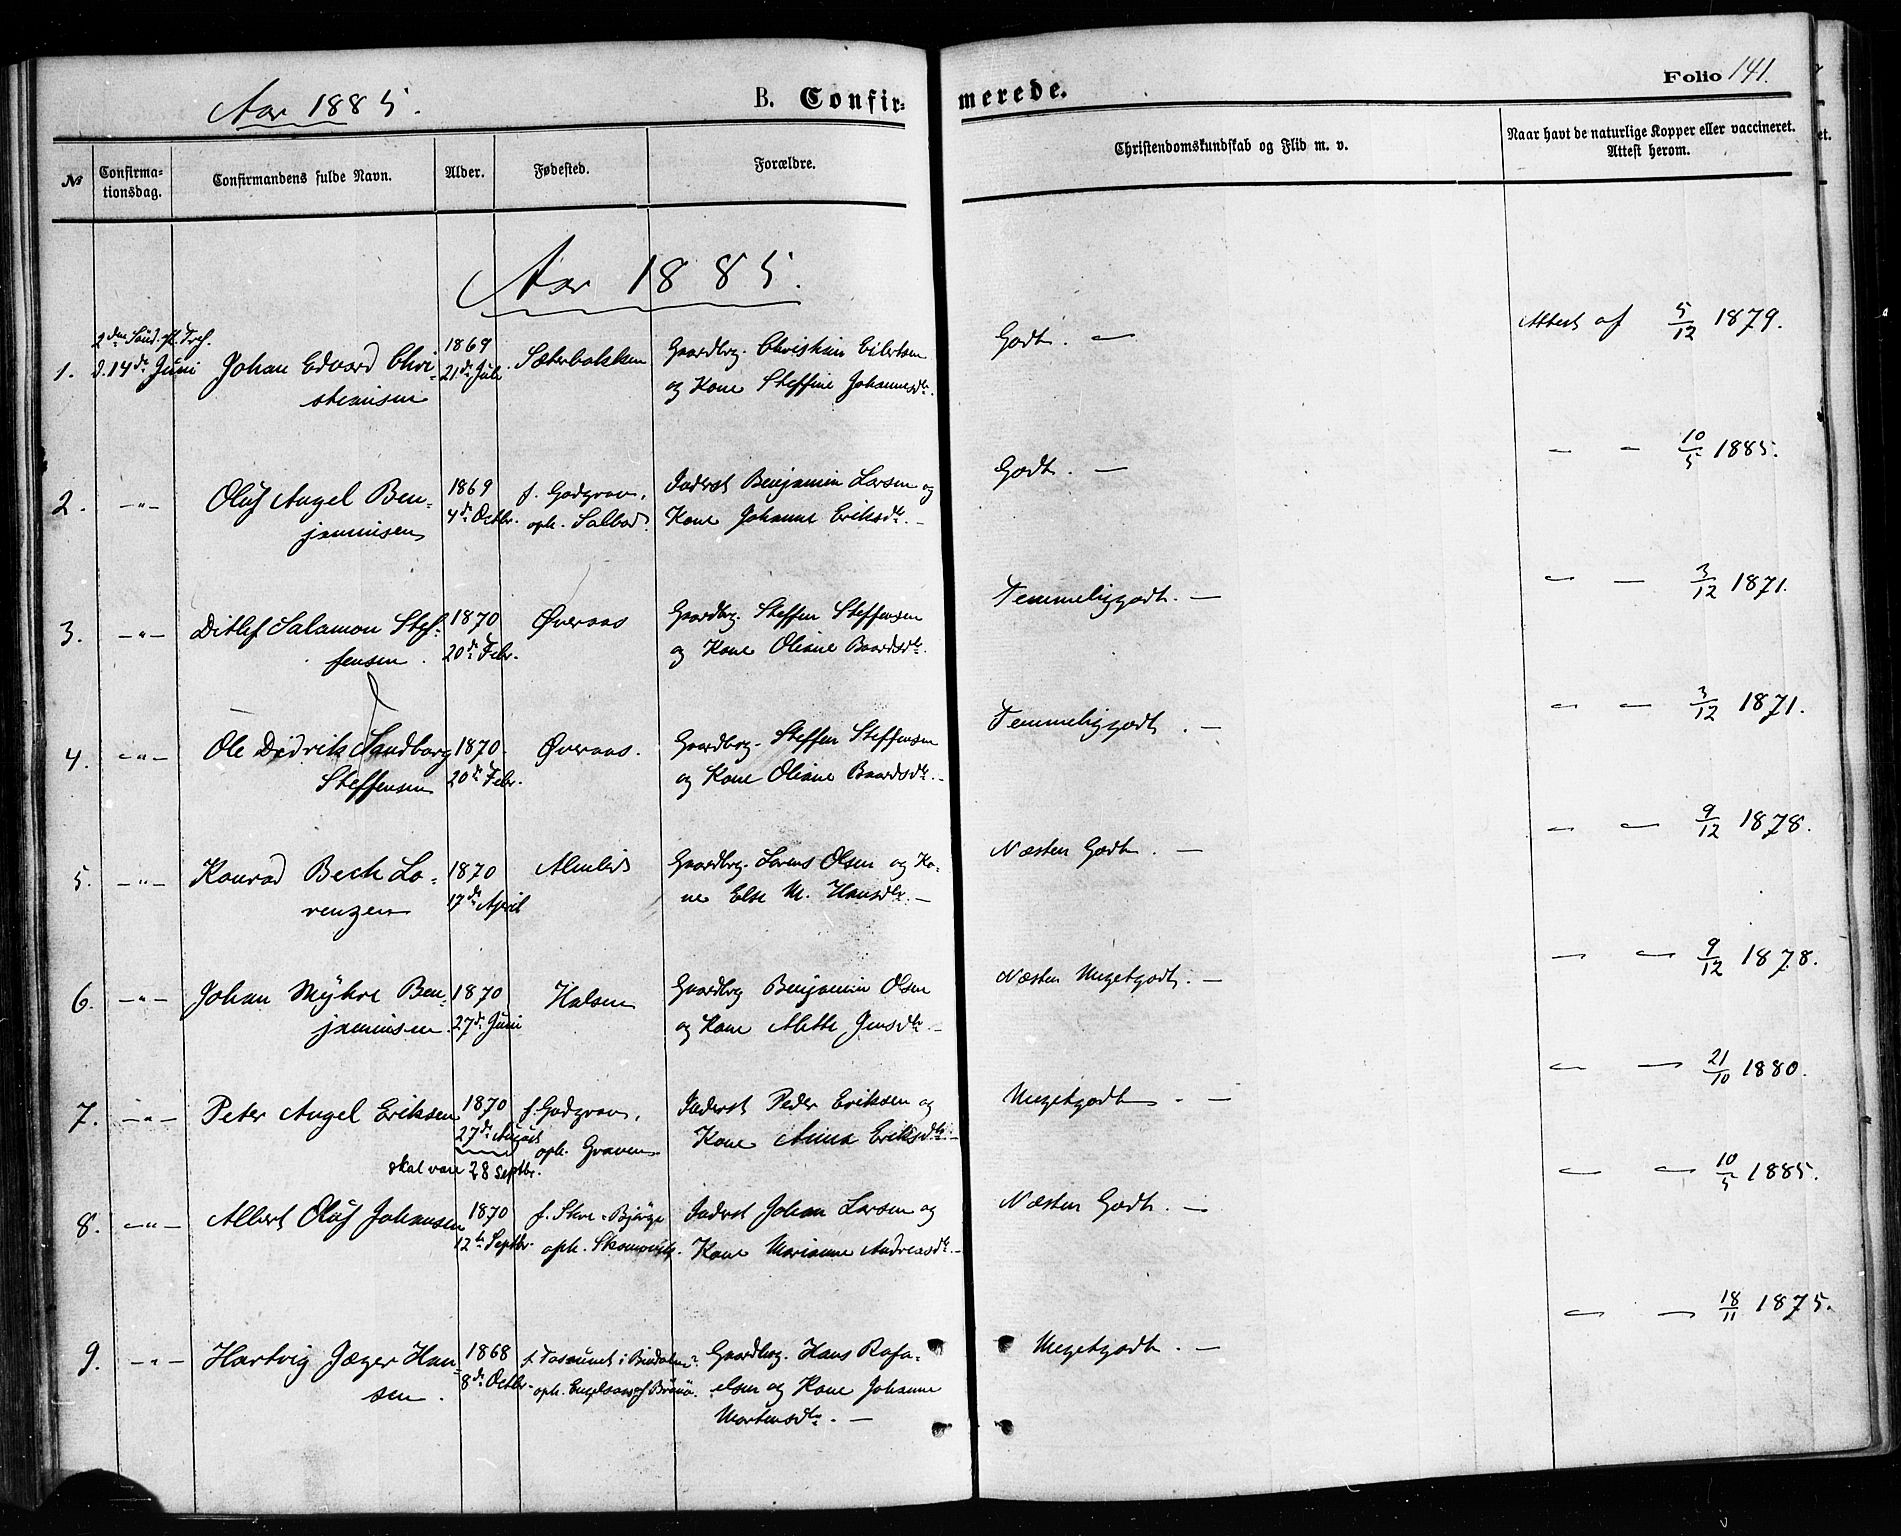 Aar 1885.
B. Confirmerede.
Folio 141.
№
Confirma-
tionsdag.
Confirmandens fulde Navn.
Alder.
Fødested.
Forældre.
Christendomskundskab og Flid m. v.
Naar havt de naturlige Kopper eller vaccineret.
Attest herom.
Aar 1885.
1.
2den Sønd. ft. Tref.
d. 14de Juni
Johan Edvard Chri-
stiansen
1869
21de Juli
Sæterbakken
Gaardbrg. Christian Eilertsen
og Kone Steffine Johannesdtr.
Godt. —
Attest af 5/12 1879.
2.
—"—
Oluf Angel Ben-
jaminsen
1869
4de Octbr.
f. Godgrav,
oph. Salbod.
Inderst Benjamin Larsen og
Kone Johanne Eriksdtr. —
Godt. —
— — 10/5 1885.
3.
—"—
Ditlef Salamon Stef-
fensen.
1870
20de Febr.
Øveraas
Gaardbrg. Steffen Steffensen
og Kone Oliane Baardsdtr.
Temmeliggodt. —
— — 3/12 1871.
4.
—"—
Ole Didrik Sandborg
Steffensen
1870.
20de Febr.
Øveraas.
Gaardbrg. Steffen Steffensen
og Kone Oliane Baardsdtr. —
Temmeliggodt. —
— — 3/12 1871.
5.
—"—
Konrad Bech Lo-
renzen
1870
17de April
Almlid
Gaardbrg. Lorens Olsen og Ko-
ne Else M. Hansdtr. —
Næsten Godt. —
— — 9/12 1878.
6.
—"—
Johan Myhre Ben-
jaminsen
1870
27de Juni
Halsen
Gaardbrg Benjamin Olsen
og Kone Mette Jensdtr. —
Næsten Megetgodt. —
— — 9/12 1878.
7.
—"—
Peter Angel Eriksen
1870
27de August
skal være 28 Septbr.
f. Godgrav,
oph. Graven
Inderst Peder Eriksen og
Kone Anna Eriksdtr. —
Megetgodt. —
— — 21/10 1880.
8.
—"—
Albert Oluf Johansen
1870
12te Septbr.
oph.
Inderst Johan Larsen og
Kone Marianne Andreasdtr. —
Næsten Godt. —
— — 10/5 1885.
9.
—"—
Hartvig Jæger Han-
sen.
1868
8de Octbr.
i Bindalen.
oph.
Gaardbrg. Hans Rafa-
elsen og Kone Johanne
Mortensdtr. —
Megetgodt. —
— — 18/11 1875.